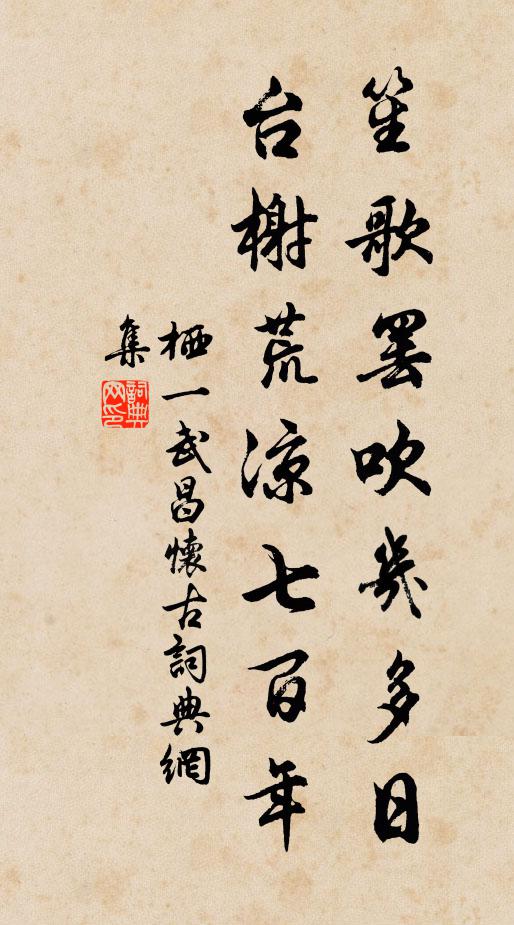 笙歌罢吹幾多日
台榭荒凉七百年
栖一武昌懷古詞典網
集
詞典网印